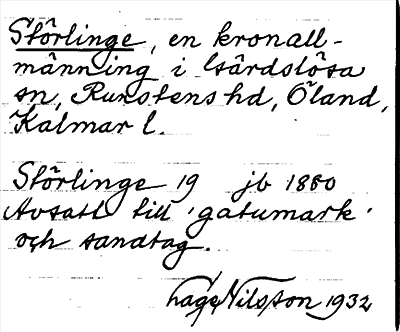 Störlinge, en kronall-
männing i Gärdslösa
sn, Runstens hd, Öland,
Kalmar l.
Störlinge 19 jb 1880
Avsatt till 'gatumark'
och sandtag.
Hage Nilsson 1932